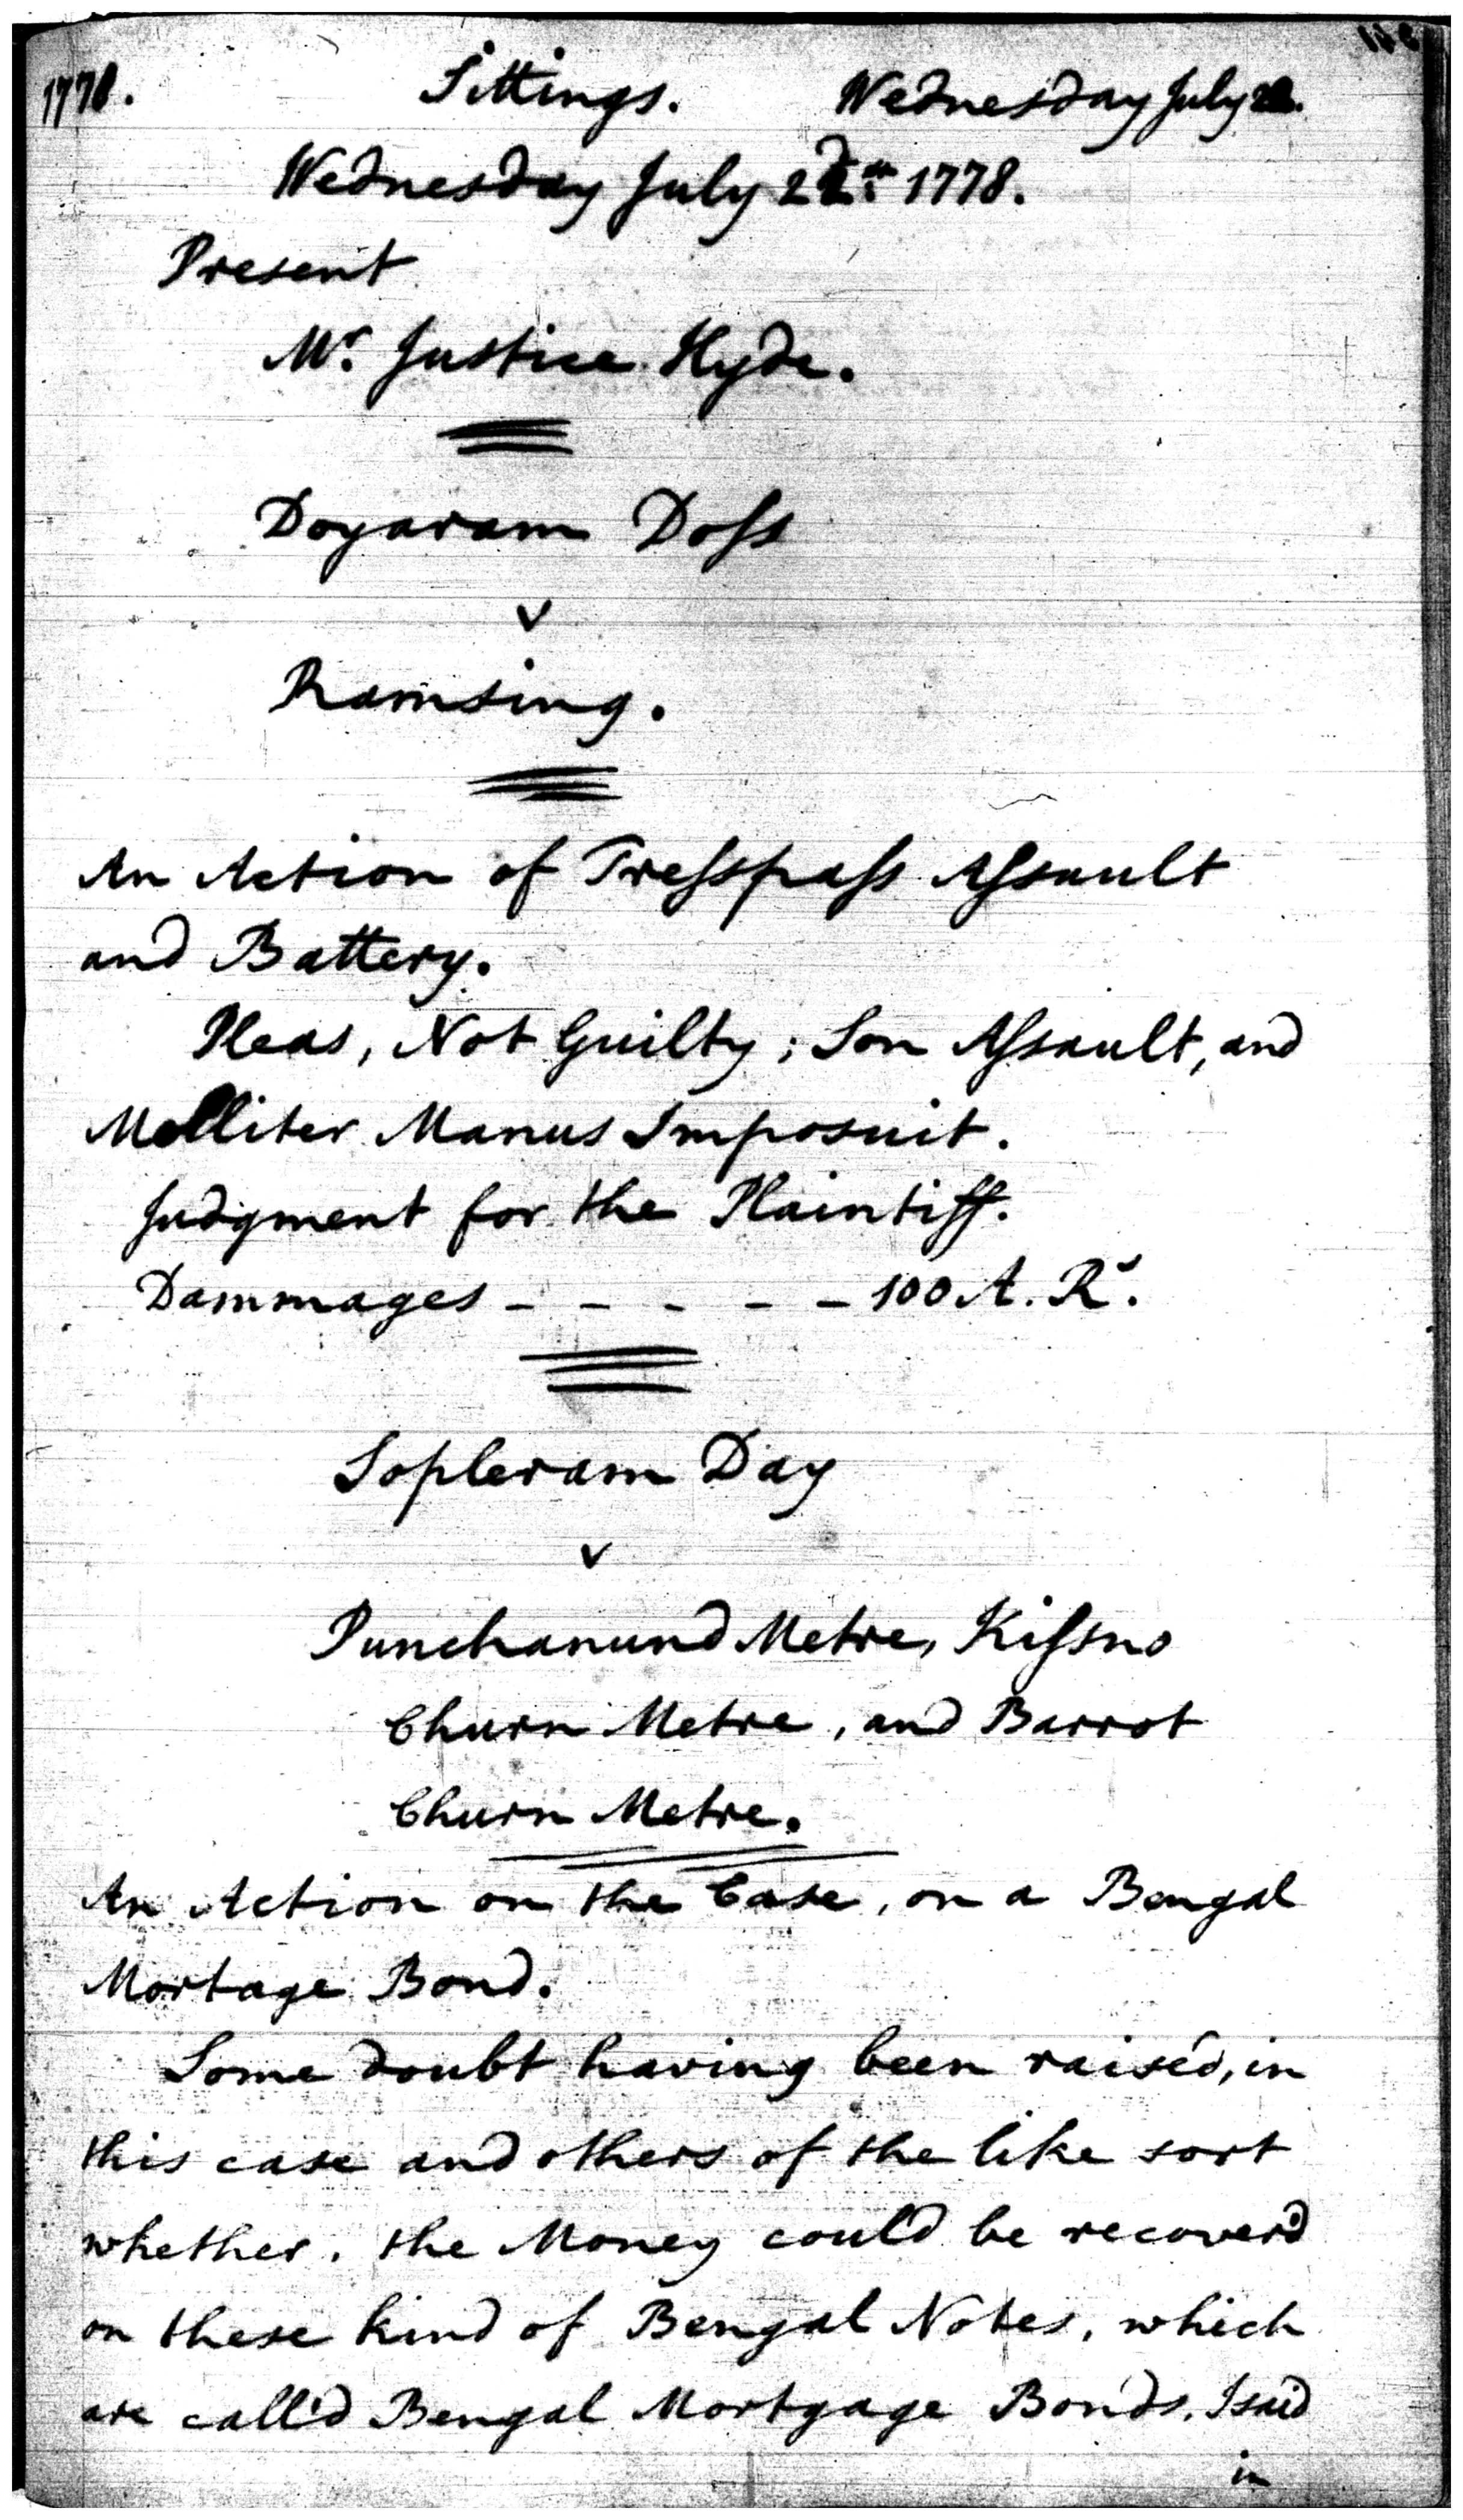 1778. Sittings. Wednesday July 22.
Wednesday July 22d. 1778.
Present
Mr. Justice Hyde.
Doyaram Doss
v
Ramsing.
An Action of Tresspass Assault
and Battery.
Pleas, Not Guilty; Son Assault, and
Molliter Manus Imposuit.
Judgment for the Plaintiff.
Dammages - - - - - 100 A. Rs.
Sopleram Day
v
Punchanund Metre, Kissno
Churn Metre, and Barrot
Churn Metre.
An Action on the Case, on a Bengal
Mortage Bond.
Some doubt having been raised, in
this case and others of the like sort
whether, the Money could be recoverd
on these kind of Bengal Notes, which
are call'd Bengal Mortgage Bonds. I said
in